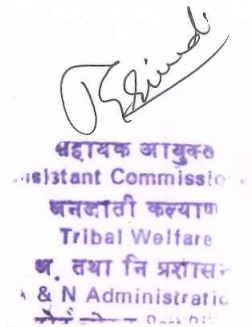 सहायक आयुक्त
Assistant Commissio
जनजाती कल्याण
Tribal Welfare
अ. तथा नि प्रशासन
A & N Administratio